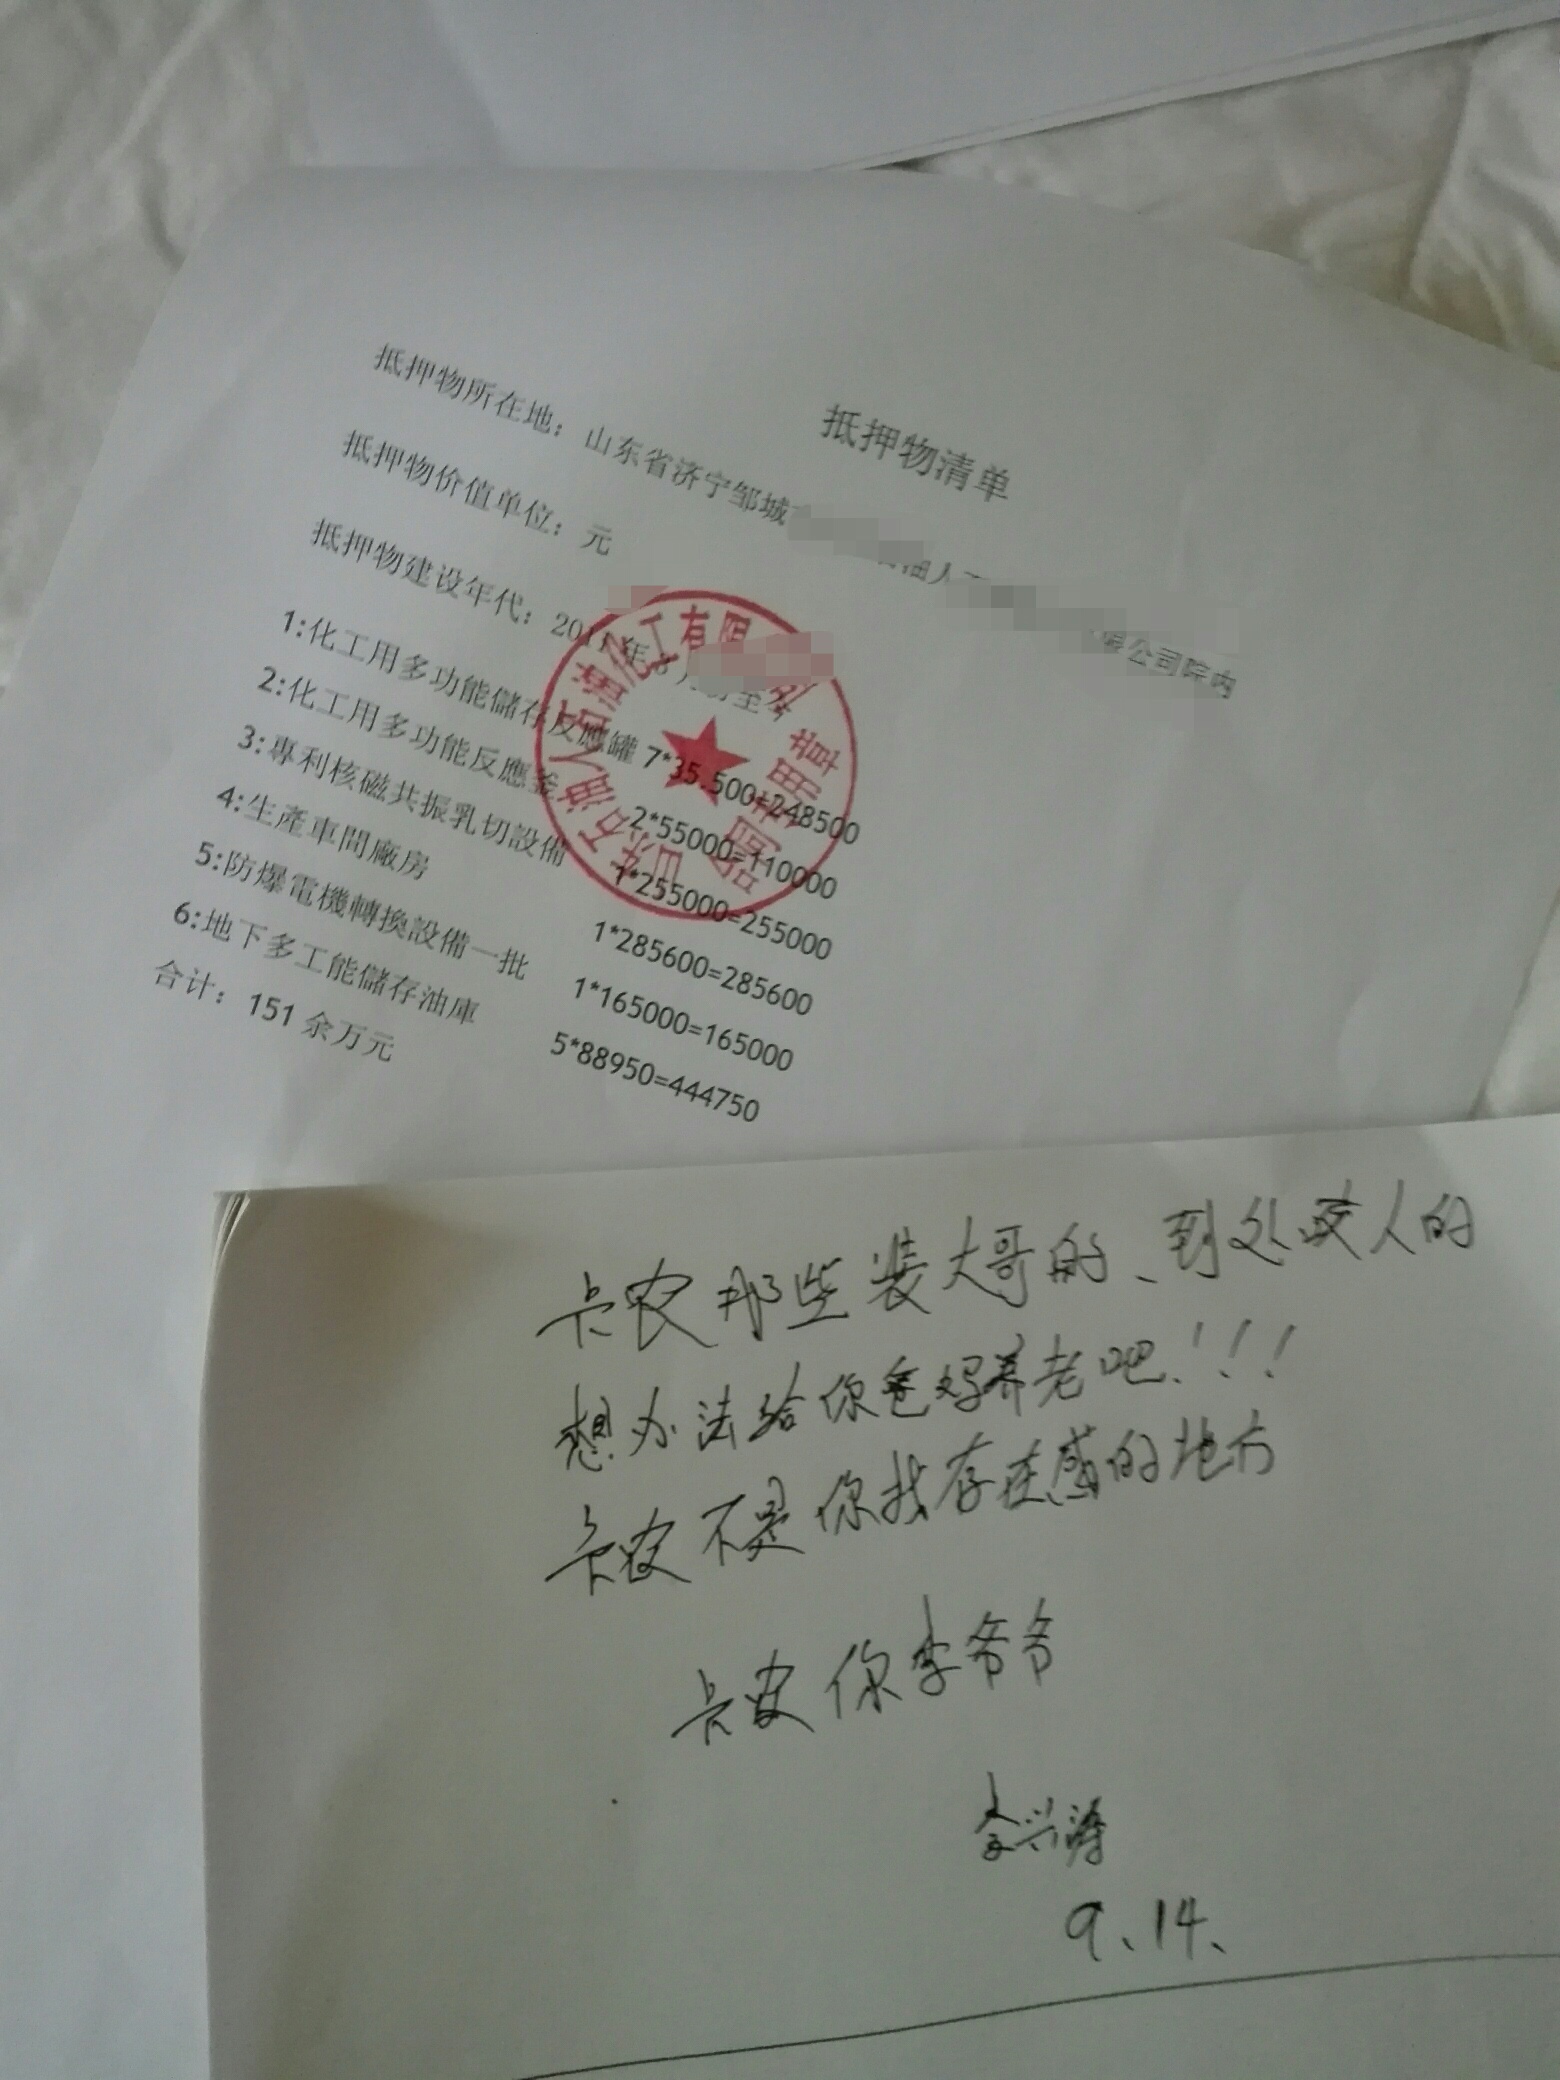 抵押物清单
抵押物所在地：山东省济宁邹城 油人 限公司院内
抵押物价值单位：元
抵押物建设年代：2011年 月份至今
1:化工用多功能儲存反應罐 7*35.500=248500
2:化工用多功能反應釜 2*55000=110000
3:專利核磁共振乳切設備 1*255000=255000
4:生產車間廠房 1*285600=285600
5:防爆電機轉換設備一批 1*165000=165000
6:地下多工能儲存油庫 5*88950=444750
合计：151余万元
山东石油人石油化工有限 司
合同专用章
卡农那些装大哥的、到处咬人的
想办法给你爸妈养老吧！！！
卡农不是你找存在感的地方
卡农你李爷爷
李兴涛
9、14、